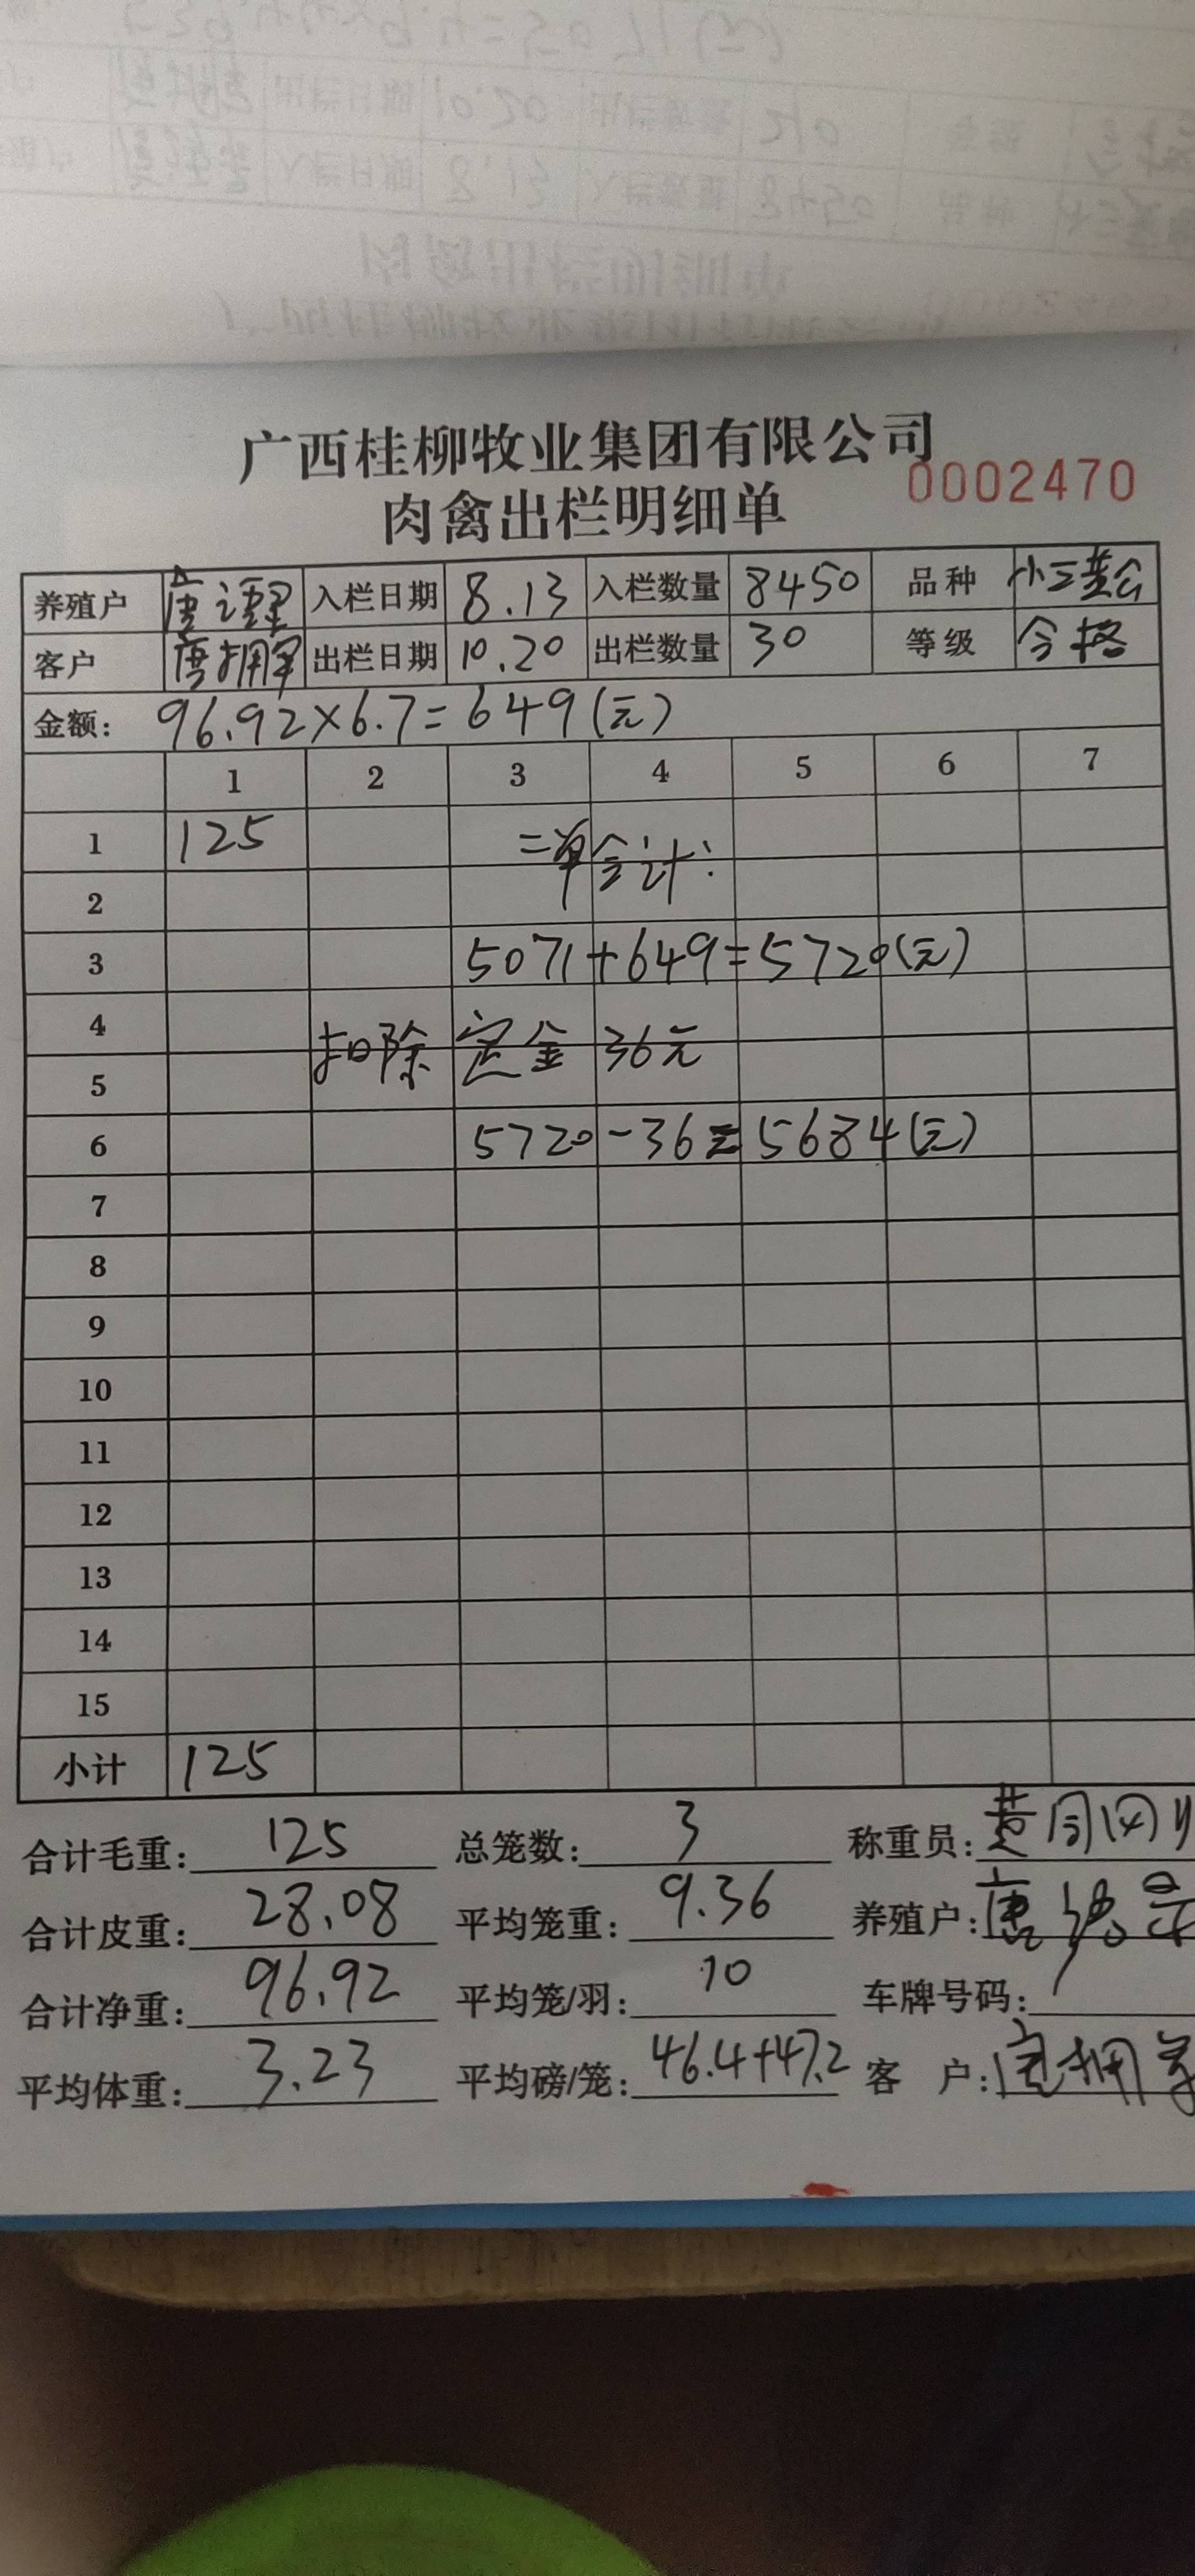 广西桂柳牧业集团有限公司
0002470
肉禽出栏明细单
养殖户 唐 入栏日期 8.13 入栏数量 8450 品种 小三黄公
客户 唐拥军 出栏日期 10.20 出栏数量 30 等级 合格
金额: 96.92×6.7=649(元)
1 2 3 4 5 6 7
1 125
二单合计:
2
3 5071+649=5720(元)
4
扣除定金36元
5
6 5720-36=5684(元)
7
8
9
10
11
12
13
14
15
小计 125
合计毛重: 125 总笼数: 3 称重员: 黄
合计皮重: 28.08 平均笼重: 9.36 养殖户: 唐
合计净重: 96.92 平均笼/羽: 10 车牌号码: /
平均体重: 3.23 平均磅/笼: 46.4+47.2 客 户: 唐拥军